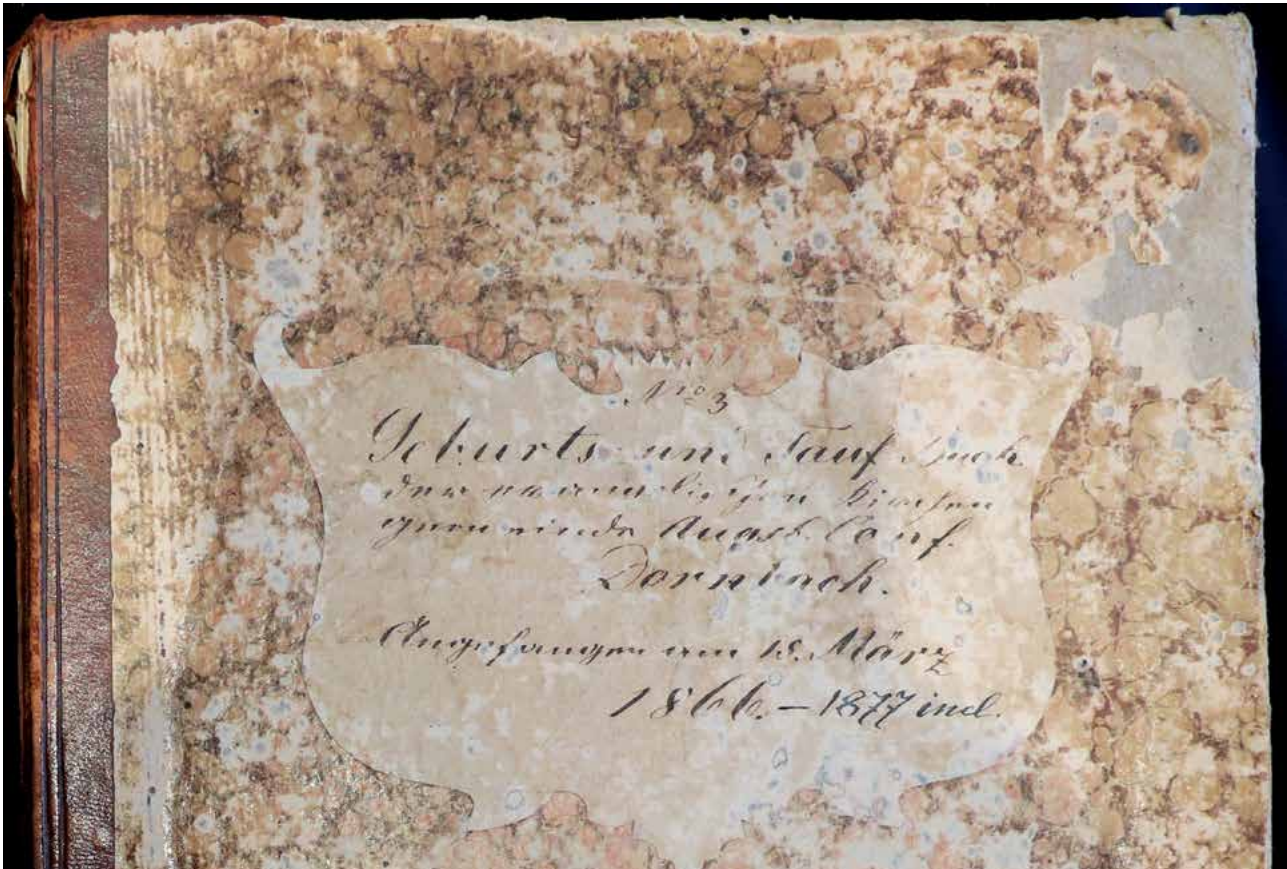 Nro 3
Geburts- und Tauf Buch
der evangelischen Kirchen
gemeinde Augsb. Conf.
Dornbach.
Angefangen am 15. März
1866. – 1877 incl.